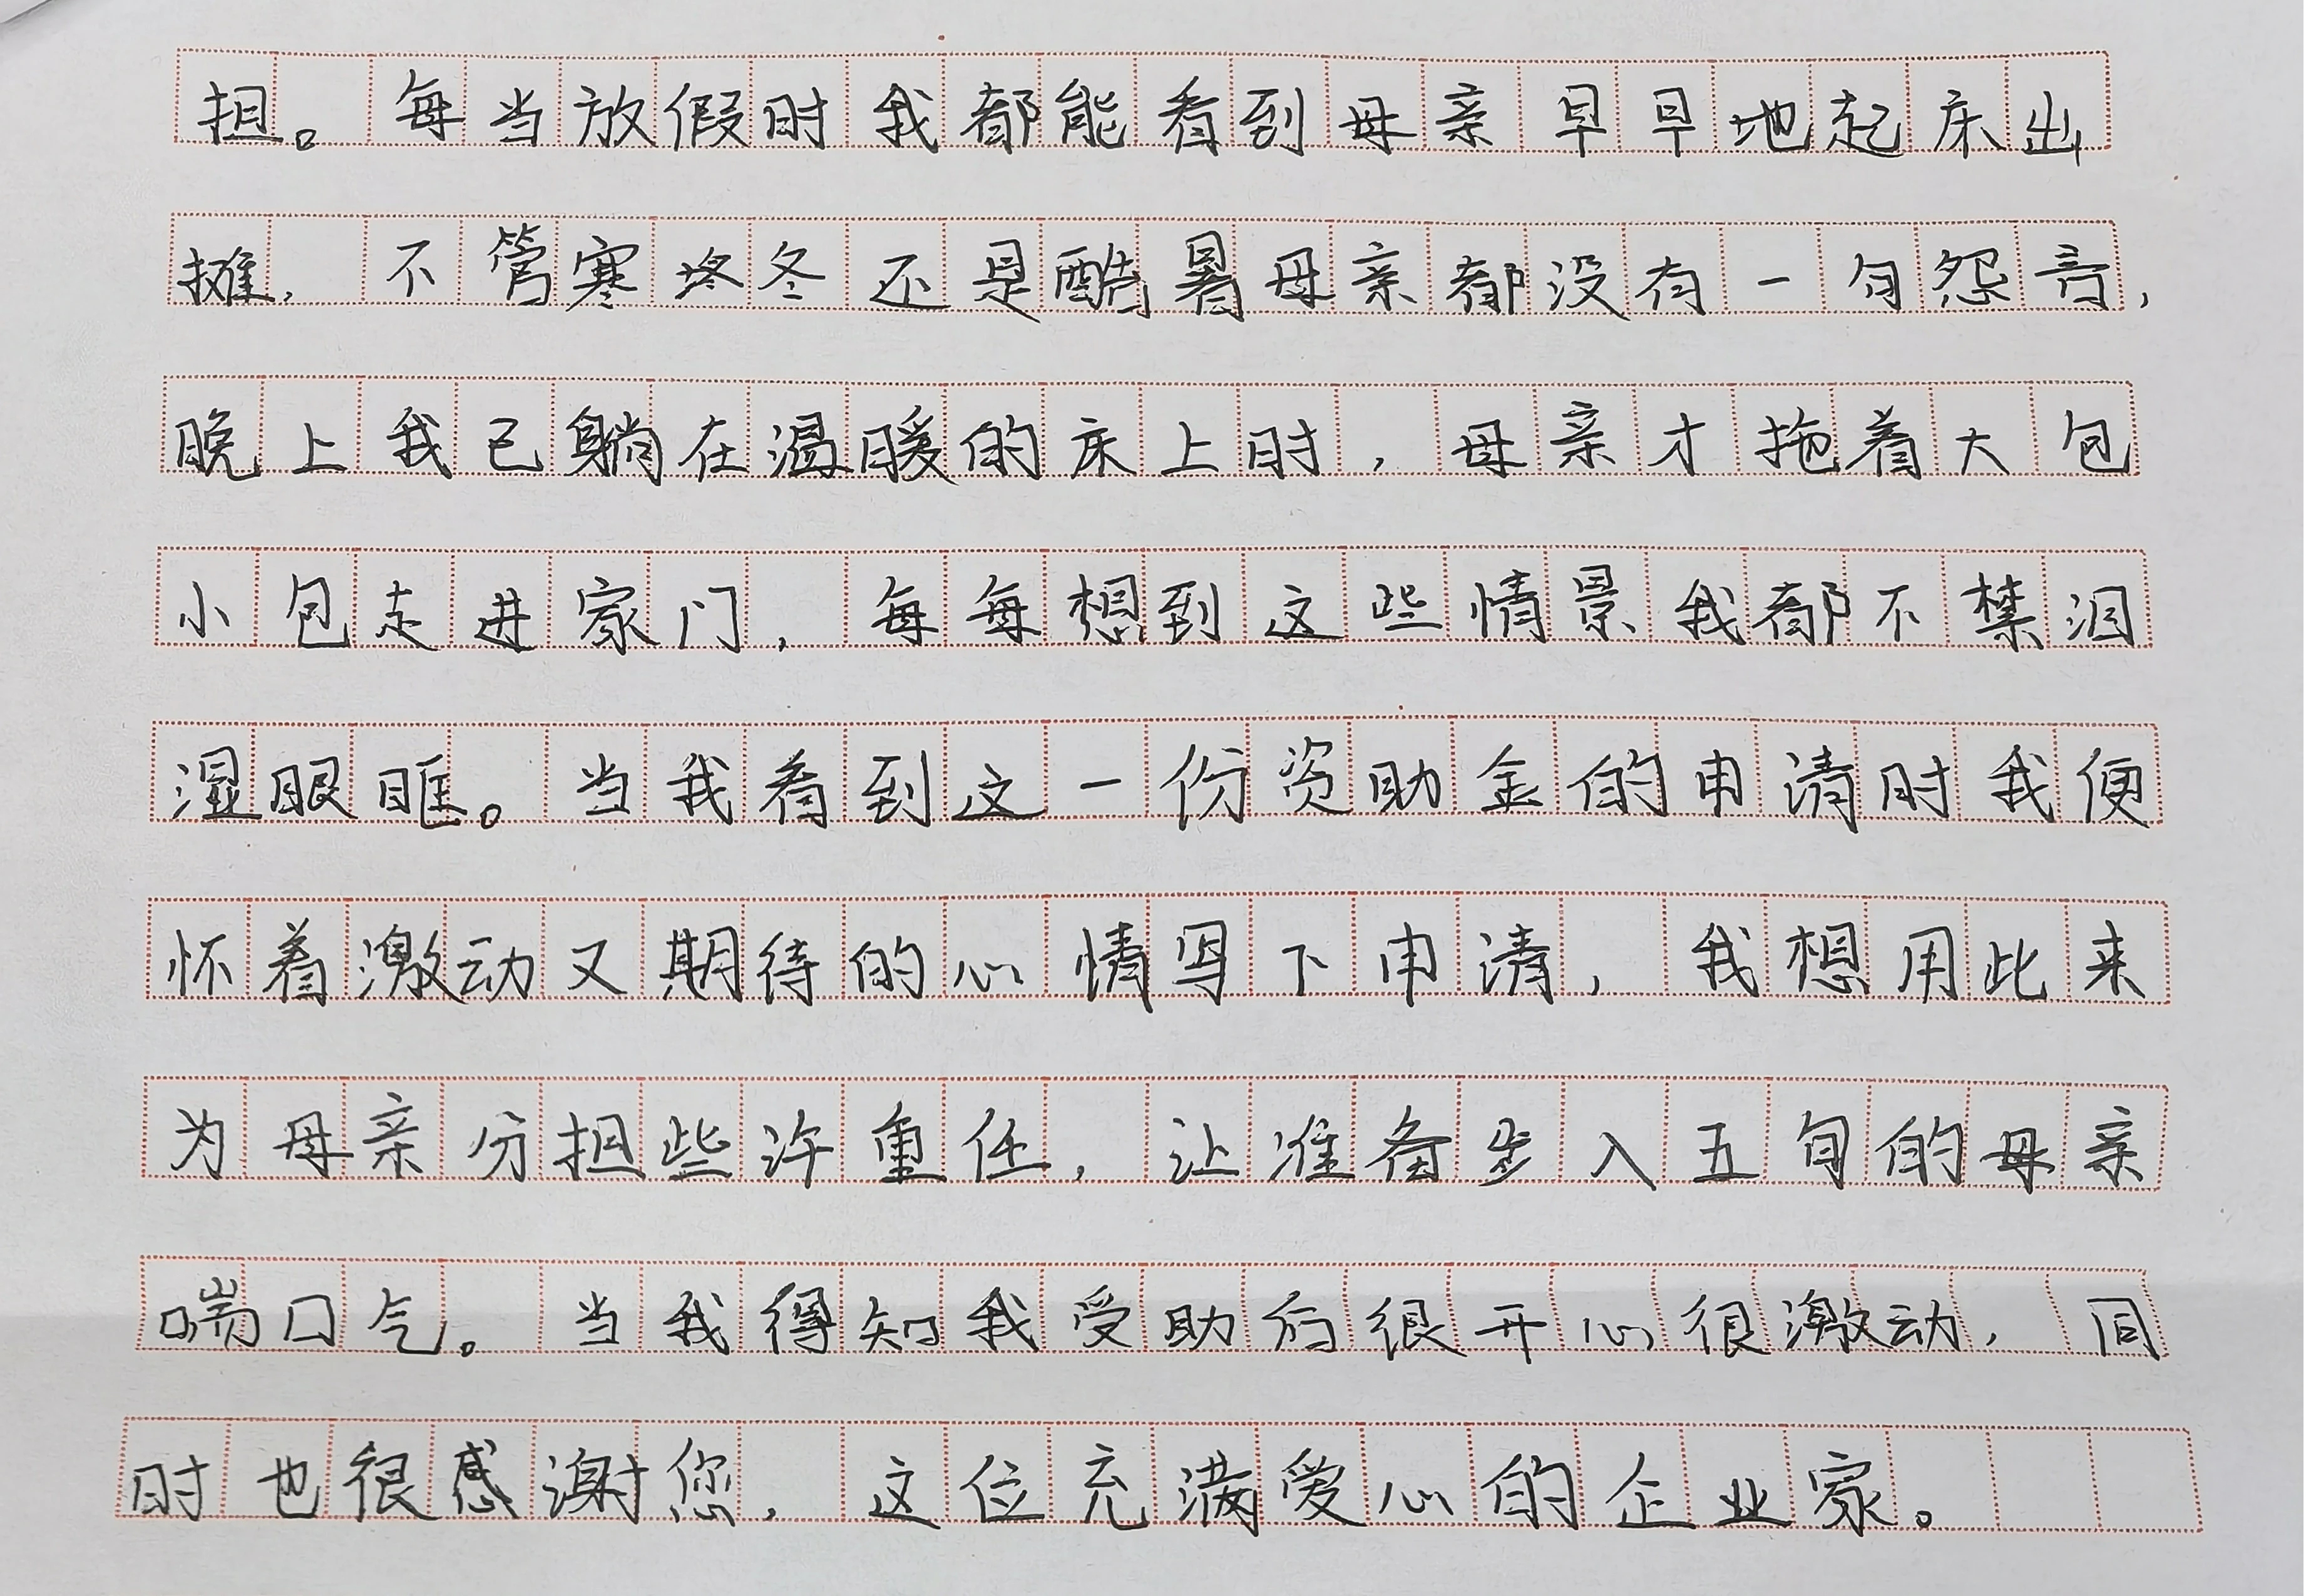 担。每当放假时我都能看到母亲早早地起床出
摊，不管寒冬冬还是酷暑母亲都没有一句怨言，
晚上我已躺在温暖的床上时，母亲才拖着大包
小包走进家门，每每想到这些情景我都不禁泪
湿眼眶。当我看到这一份资助金的申请时我便
怀着激动又期待的心情写下申请，我想用此来
为母亲分担些许重任，让准备步入五旬的母亲
喘口气。当我得知我受助后很开心很激动，同
时也很感谢您，这位充满爱心的企业家。